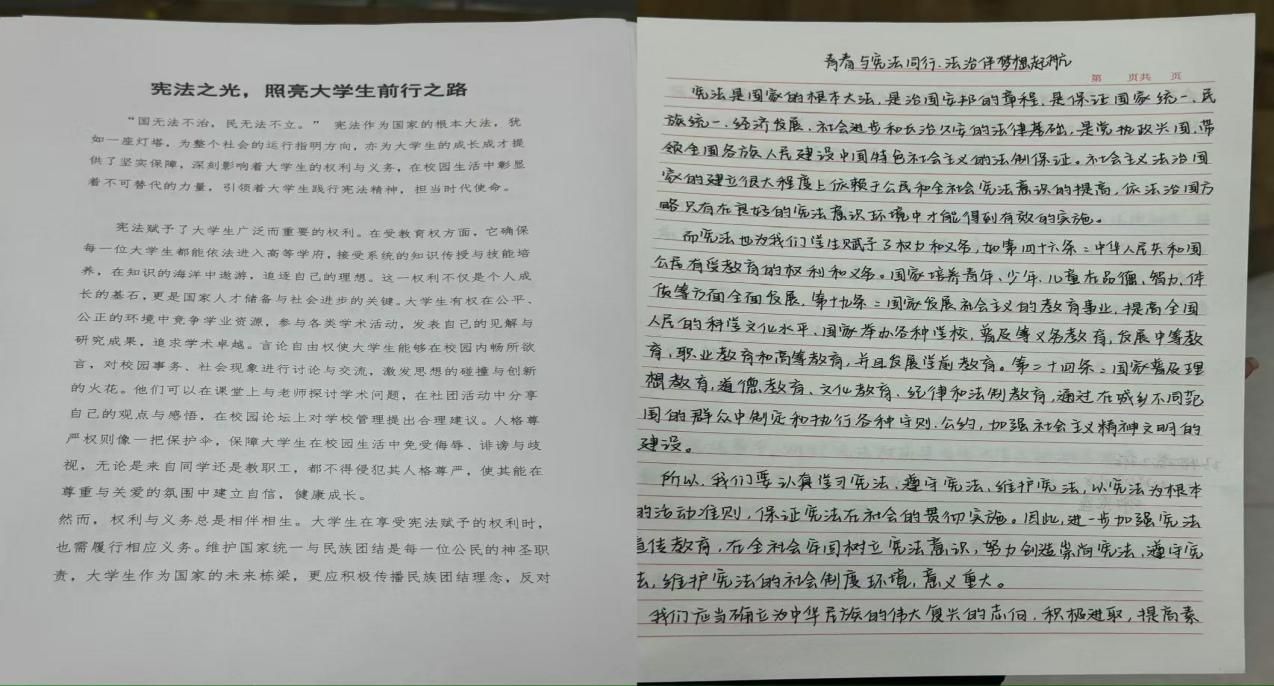 宪法之光，照亮大学生前行之路
“国无法不治，民无法不立。” 宪法作为国家的根本大法，犹
如一座灯塔，为整个社会的运行指明方向，亦为大学生的成长成才提
供了坚实保障，深刻影响着大学生的权利与义务，在校园生活中彰显
着不可替代的力量，引领着大学生践行宪法精神，担当时代使命。
宪法赋予了大学生广泛而重要的权利。在受教育权方面，它确保
每一位大学生都能依法进入高等学府，接受系统的知识传授与技能培
养，在知识的海洋中遨游，追逐自己的理想。这一权利不仅是个人成
长的基石，更是国家人才储备与社会进步的关键。大学生有权在公平、
公正的环境中竞争学业资源，参与各类学术活动，发表自己的见解与
研究成果，追求学术卓越。言论自由权使大学生能够在校园内畅所欲
言，对校园事务、社会现象进行讨论与交流，激发思想的碰撞与创新
的火花。他们可以在课堂上与老师探讨学术问题，在社团活动中分享
自己的观点与感悟，在校园论坛上对学校管理提出合理建议。人格尊
严权则像一把保护伞，保障大学生在校园生活中免受侮辱、诽谤与歧
视，无论是来自同学还是教职工，都不得侵犯其人格尊严，使其能在
尊重与关爱的氛围中建立自信，健康成长。
然而，权利与义务总是相伴相生。大学生在享受宪法赋予的权利时，
也需履行相应义务。维护国家统一与民族团结是每一位公民的神圣职
责，大学生作为国家的未来栋梁，更应积极传播民族团结理念，反对
青春与宪法同行、法治伴梦想起航
第 页共 页
宪法是国家的根本大法，是治国安邦的章程，是保证国家统一、民
族统一、经济发展、社会进步和长治久安的法律基础，是党执政兴国，带
领全国各族人民建设中国特色社会主义的法制保证。社会主义法治国
家的建立很大程度上依赖于公民和全社会宪法意识的提高，依法治国方
略只有在良好的宪法意识环境中才能得到有效的实施。
而宪法也为我们学生赋予了权力和义务，如第四十六条：中华人民共和国
公民有受教育的权利和义务。国家培养青年、少年、儿童在品德、智力、体
质等方面全面发展，第十九条：国家发展社会主义的教育事业，提高全国
人民的科学文化水平、国家举办各种学校，普及等义务教育，发展中等教
育，职业教育和高等教育，并且发展学前教育。第二十四条：国家普及理
想教育，道德教育、文化教育、纪律和法制教育，通过在城乡不同范
围的群众中制定和执行各种守则、公约，加强社会主义精神文明的
建设。
所以，我们要认真学习宪法、遵守宪法、维护宪法，以宪法为根本
的活动准则，保证宪法在社会的贯彻实施。因此，进一步加强宪法
宣传教育，在全社会牢固树立宪法意识，努力创造崇尚宪法、遵守宪
法，维护宪法的社会制度环境，意义重大。
我们应当确立为中华民族的伟大复兴的志向，积极进取，提高素